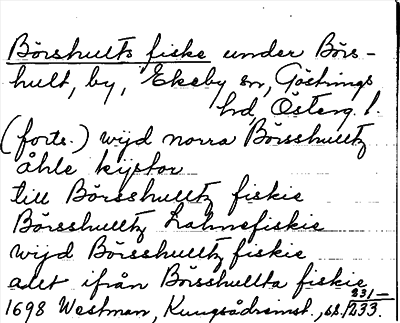 Börshults fiske under Börs-
hult, by, Ekeby sn, Göstrings
hd, Österg. l.
(forts.) wijd norra Börsshulltz
åhle kijstor
till Börsshulltz fiskie
Börsshulltz Lahnefiskie
wijd Börsshulltz fiskie
adet ifrån Börsshullta fiskie
1698 Westman, Kungsådreinst., 68. 231,–
233.